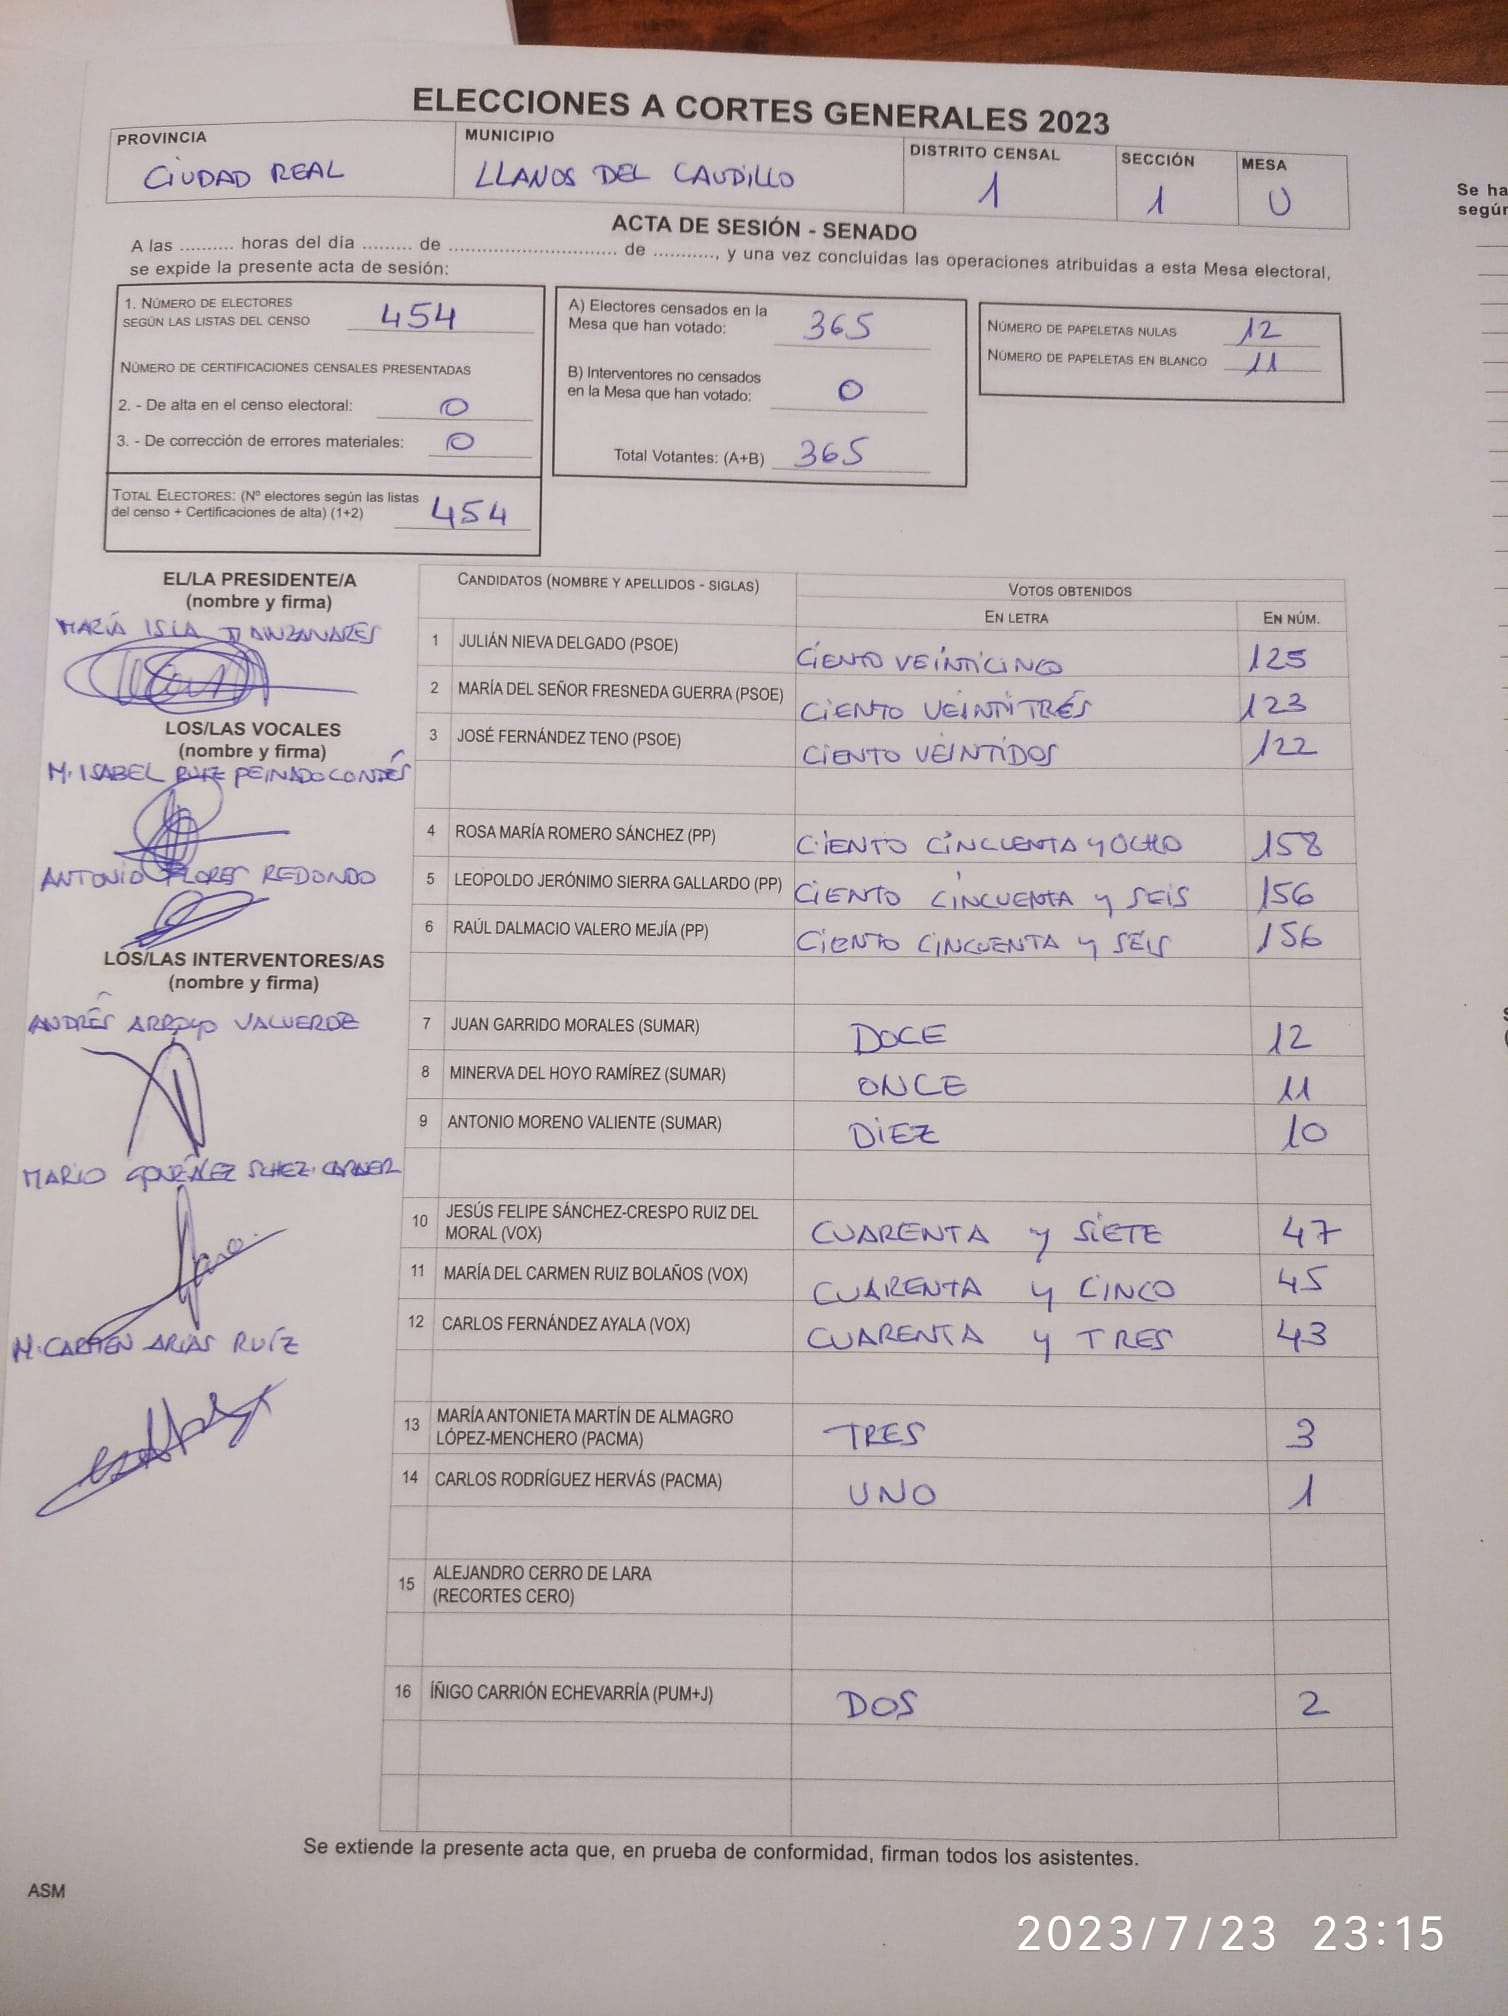 ELECCIONES A CORTES GENERALES 2023
PROVINCIA
CIUDAD REAL
MUNICIPIO
LLANOS DEL CAUDILLO
DISTRITO CENSAL
1
SECCIÓN
1
MESA
U
Se ha
según
ACTA DE SESIÓN - SENADO
A las .......... horas del día ......... de .............................. de ..........., y una vez concluidas las operaciones atribuidas a esta Mesa electoral,
se expide la presente acta de sesión:
1. NÚMERO DE ELECTORES
SEGÚN LAS LISTAS DEL CENSO 454
NÚMERO DE CERTIFICACIONES CENSALES PRESENTADAS
2. - De alta en el censo electoral: 0
3. - De corrección de errores materiales: 0
TOTAL ELECTORES: (Nº electores según las listas
del censo + Certificaciones de alta) (1+2) 454
A) Electores censados en la
Mesa que han votado: 365
B) Interventores no censados
en la Mesa que han votado: 0
Total Votantes: (A+B) 365
NÚMERO DE PAPELETAS NULAS 12
NÚMERO DE PAPELETAS EN BLANCO 11
EL/LA PRESIDENTE/A
(nombre y firma)
MARÍA ISLA MANZANARES
LOS/LAS VOCALES
(nombre y firma)
M. ISABEL RUIZ PEINADO CONDÉS
ANTONIO FLORES REDONDO
LOS/LAS INTERVENTORES/AS
(nombre y firma)
ANDRÉS ARROYO VALVERDE
MARIO GONZÁLEZ SCHEZ-CARNER
M. CARMEN ARIAS RUÍZ
CANDIDATOS (NOMBRE Y APELLIDOS - SIGLAS) VOTOS OBTENIDOS
EN LETRA EN NÚM.
1 JULIÁN NIEVA DELGADO (PSOE) CIENTO VEINTICINCO 125
2 MARÍA DEL SEÑOR FRESNEDA GUERRA (PSOE) CIENTO VEINTITRÉS 123
3 JOSÉ FERNÁNDEZ TENO (PSOE) CIENTO VEINTIDOS 122
4 ROSA MARÍA ROMERO SÁNCHEZ (PP) CIENTO CINCUENTA Y OCHO 158
5 LEOPOLDO JERÓNIMO SIERRA GALLARDO (PP) CIENTO CINCUENTA Y SEIS 156
6 RAÚL DALMACIO VALERO MEJÍA (PP) CIENTO CINCUENTA Y SEIS 156
7 JUAN GARRIDO MORALES (SUMAR) DOCE 12
8 MINERVA DEL HOYO RAMÍREZ (SUMAR) ONCE 11
9 ANTONIO MORENO VALIENTE (SUMAR) DIEZ 10
10 JESÚS FELIPE SÁNCHEZ-CRESPO RUIZ DEL
MORAL (VOX) CUARENTA Y SIETE 47
11 MARÍA DEL CARMEN RUIZ BOLAÑOS (VOX) CUARENTA Y CINCO 45
12 CARLOS FERNÁNDEZ AYALA (VOX) CUARENTA Y TRES 43
13 MARÍA ANTONIETA MARTÍN DE ALMAGRO
LÓPEZ-MENCHERO (PACMA) TRES 3
14 CARLOS RODRÍGUEZ HERVÁS (PACMA) UNO 1
15 ALEJANDRO CERRO DE LARA
(RECORTES CERO)
16 ÍÑIGO CARRIÓN ECHEVARRÍA (PUM+J) DOS 2
Se extiende la presente acta que, en prueba de conformidad, firman todos los asistentes.
ASM
2023/7/23 23:15